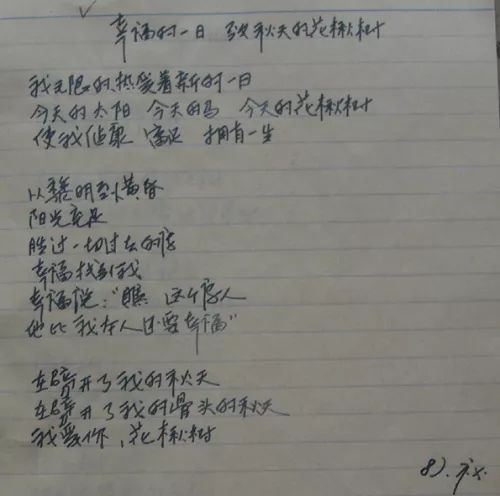 幸福的一日 致秋天的花楸树
我无限的热爱着新的一日
今天的太阳 今天的马 今天的花楸树
使我健康 富足 拥有一生
从黎明到黄昏
阳光充足
胜过一切过去的诗
幸福找到我
幸福说:“瞧 这个诗人
他比我本人还要幸福”
在劈开了我的秋天
在劈开了我的骨头的秋天
我爱你,花楸树
87.